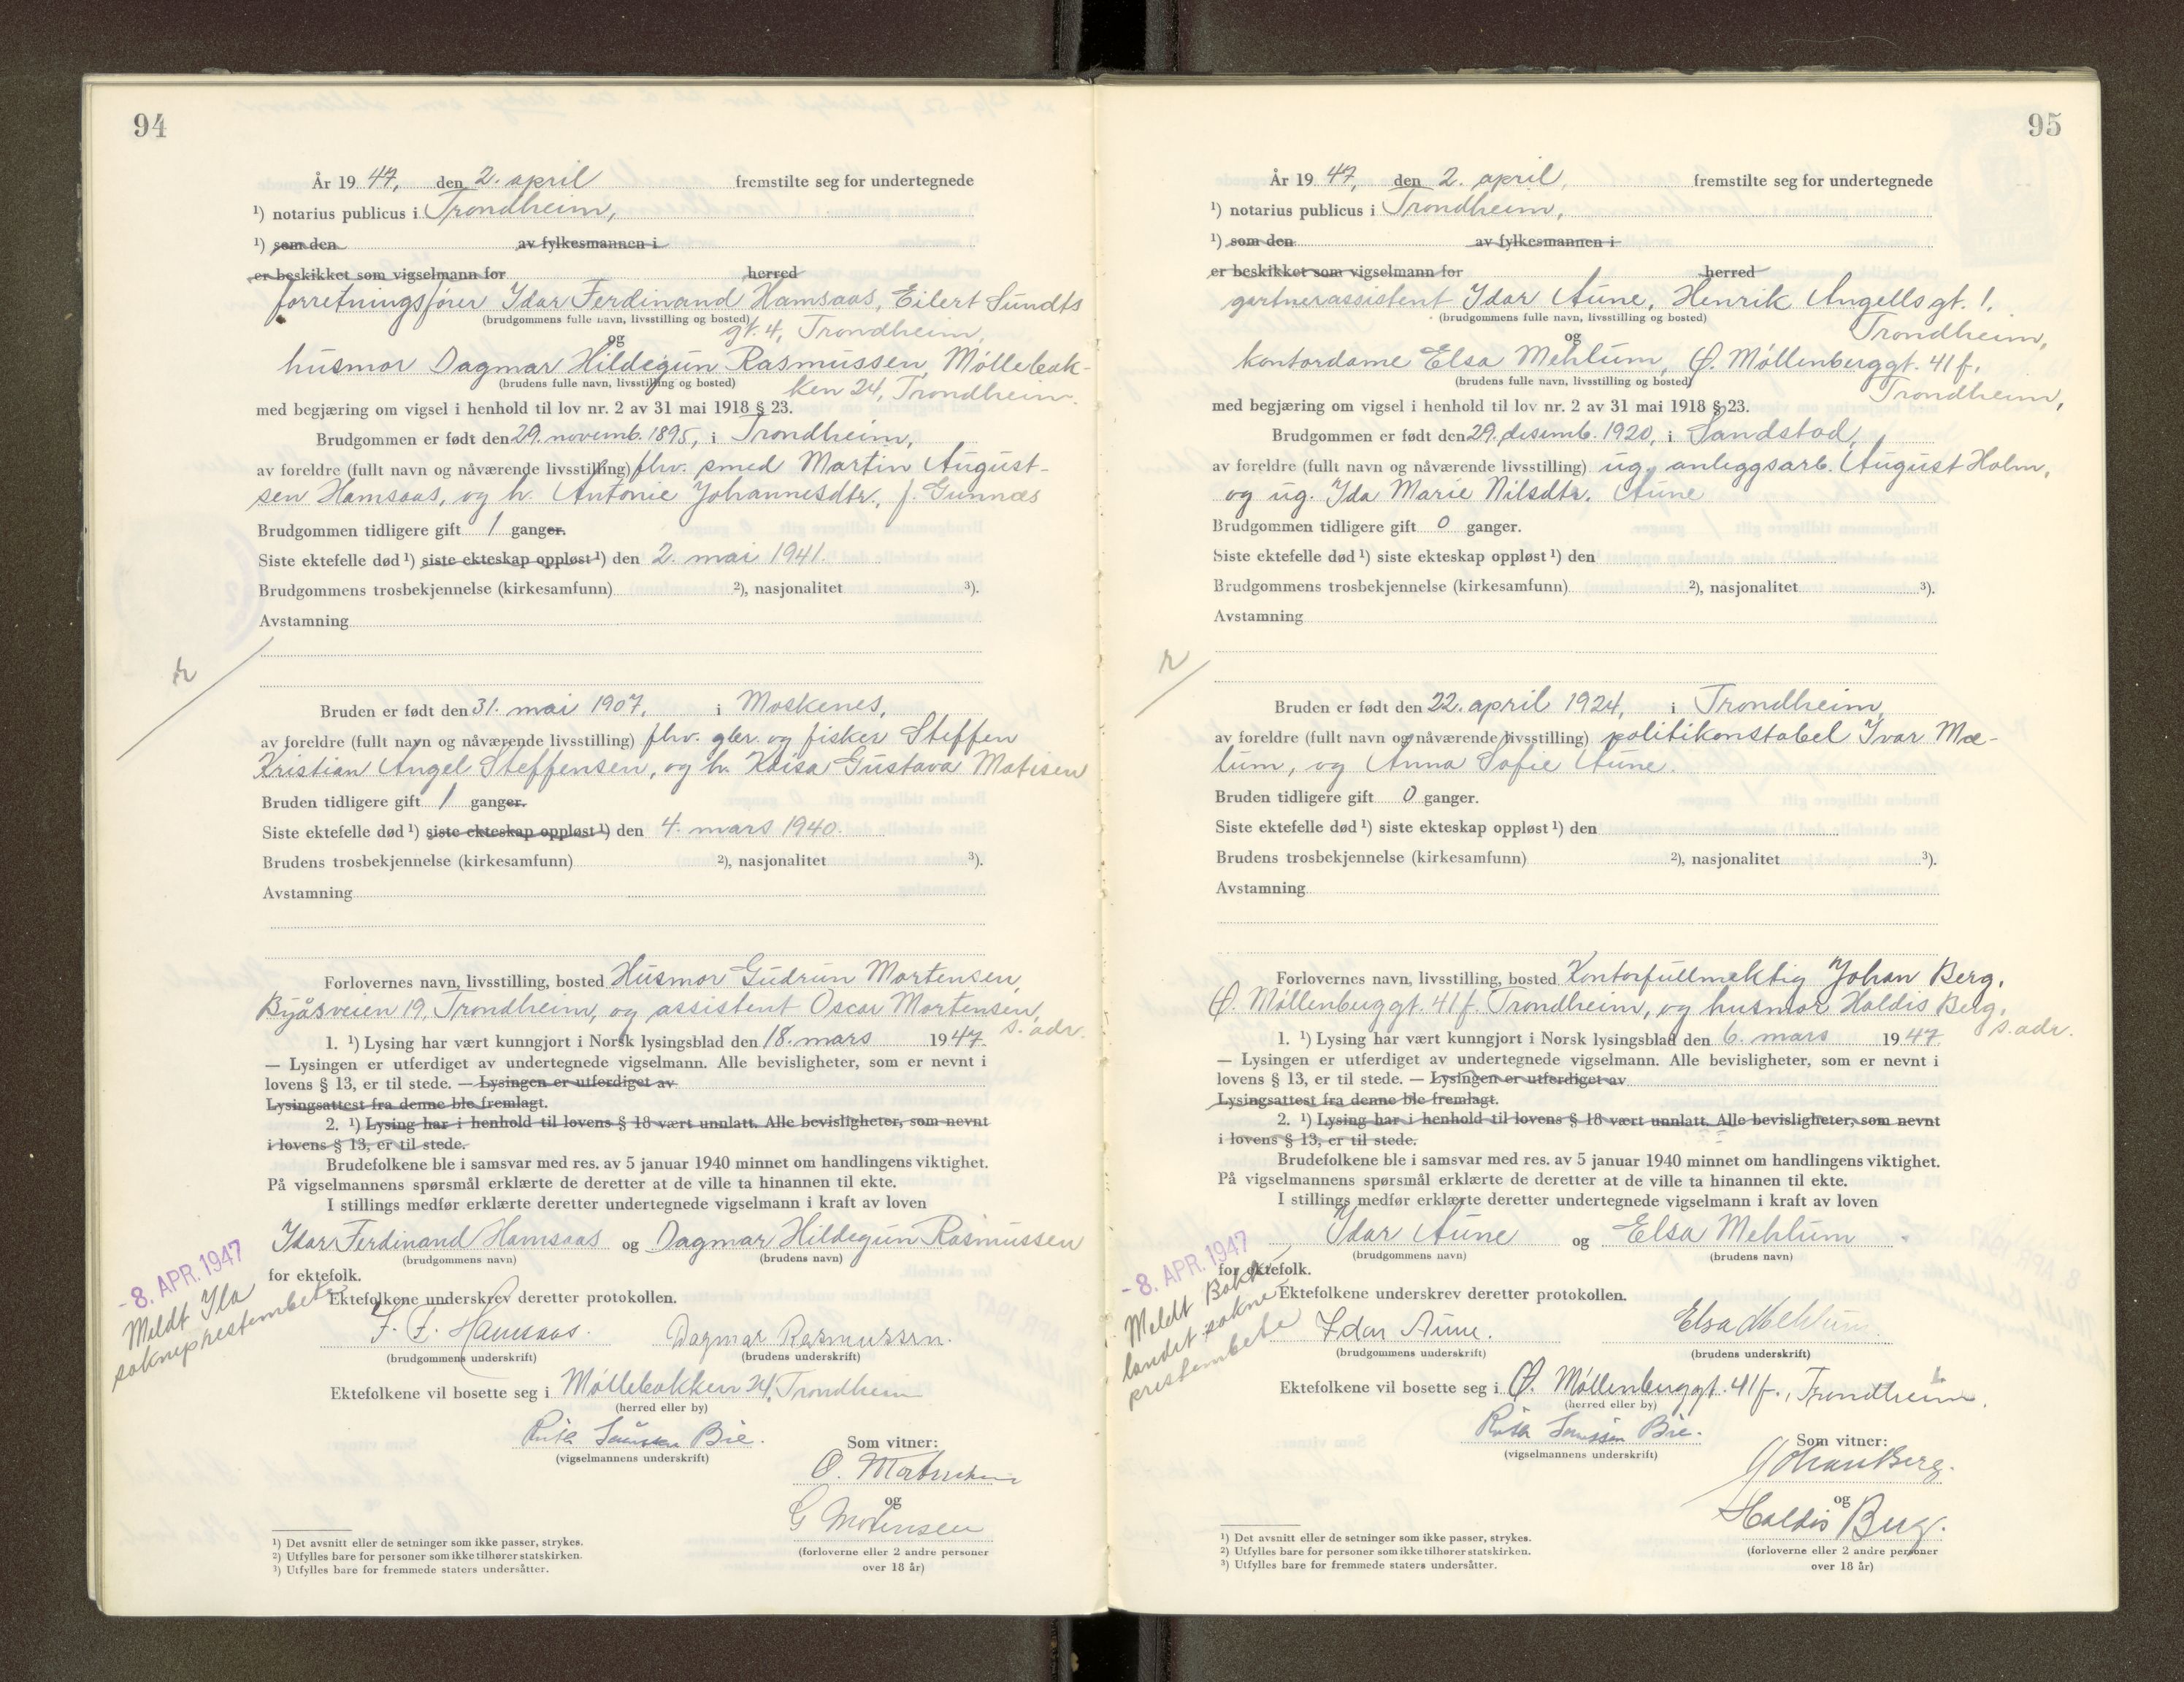 94
År 19 47, den 2. april fremstilte seg for undertegnede
¹) notarius publicus i Trondheim,
¹) som den av fylkesmannen i
er beskikket som vigselmann for herred
forretningsfører Idar Ferdinand Hamsaas, Eilert Sundts
(brudgommens fulle navn, livsstilling og bosted)
gt. 4, Trondheim,
og
husmor Dagmar Hildegun Rasmussen, Møllebak-
(brudens fulle navn, livsstilling og bosted)
ken 24, Trondheim.
med begjæring om vigsel i henhold til lov nr. 2 av 31 mai 1918 § 23.
Brudgommen er født den 29. novemb. 1895, i Trondheim,
av foreldre (fullt navn og nåværende livsstilling) fhv. smed Martin August-
sen Hamsaas, og h. Antonie Johannesdtr., f. Gunnæs
Brudgommen tidligere gift 1 ganger.
Siste ektefelle død ¹) siste ekteskap oppløst ¹) den 2. mai 1941.
Brudgommens trosbekjennelse (kirkesamfunn) ²), nasjonalitet ³).
Avstamning
Bruden er født den 31. mai 1907, i Moskenes,
av foreldre (fullt navn og nåværende livsstilling) fhv. gbr. og fisker Steffen
Kristian Angel Steffensen, og h. Kaisa Gustava Matisen
Bruden tidligere gift 1 ganger.
Siste ektefelle død ¹) siste ekteskap oppløst ¹) den 4. mars 1940.
Brudens trosbekjennelse (kirkesamfunn) ²), nasjonalitet ³).
Avstamning
Forlovernes navn, livsstilling, bosted Husmor Gudrun Mortensen,
Byåsveien 19, Trondheim, og assistent Oscar Mortensen,
s. adr.
1. ¹) Lysing har vært kunngjort i Norsk lysingsblad den 18. mars 1947.
— Lysingen er utferdiget av undertegnede vigselmann. Alle bevisligheter, som er nevnt i
lovens § 13, er til stede. — Lysingen er utferdiget av
Lysingsattest fra denne ble fremlagt.
2. ¹) Lysing har i henhold til lovens § 18 vært unnlatt. Alle bevisligheter, som nevnt
i lovens § 13, er til stede.
Brudefolkene ble i samsvar med res. av 5 januar 1940 minnet om handlingens viktighet.
På vigselmannens spørsmål erklærte de deretter at de ville ta hinannen til ekte.
I stillings medfør erklærte deretter undertegnede vigselmann i kraft av loven
Idar Ferdinand Hamsaas og Dagmar Hildegun Rasmussen
(brudgommens navn) (brudens navn)
for ektefolk.
- 8. APR. 1947
Meldt Ila
sokneprestembete
Ektefolkene underskrev deretter protokollen.
I. F. Hamsaas. Dagmar Rasmussen.
(brudgommens underskrift) (brudens underskrift)
Ektefolkene vil bosette seg i Møllebakken 24, Trondheim
(herred eller by)
Bie.
(vigselmannens underskrift)
Som vitner:
O. Mortensen
og
G Mortensen
(forloverne eller 2 andre personer
over 18 år)
¹) Det avsnitt eller de setninger som ikke passer, strykes.
²) Utfylles bare for personer som ikke tilhører statskirken.
³) Utfylles bare for fremmede staters undersåtter.
95
År 19 47, den 2. april, fremstilte seg for undertegnede
¹) notarius publicus i Trondheim,
¹) som den av fylkesmannen i
er beskikket som vigselmann for herred
gartnerassistent Idar Aune, Henrik Angells gt. 1,
(brudgommens fulle navn, livsstilling og bosted)
Trondheim,
og
kontordame Elsa Mehlum, Ø. Møllenberggt. 41 f,
(brudens fulle navn, livsstilling og bosted)
Trondheim,
med begjæring om vigsel i henhold til lov nr. 2 av 31 mai 1918 § 23.
Brudgommen er født den 29. desemb. 1920, i Sandstad,
av foreldre (fullt navn og nåværende livsstilling) ug. anleggsarb. August Holm,
og ug. Ida Marie Nilsdtr. Aune
Brudgommen tidligere gift 0 ganger.
Siste ektefelle død ¹) siste ekteskap oppløst ¹) den
Brudgommens trosbekjennelse (kirkesamfunn) ²), nasjonalitet ³).
Avstamning
Bruden er født den 22. april 1924, i Trondheim,
av foreldre (fullt navn og nåværende livsstilling) politikonstabel Ivar Mæ-
lum, og Anna Sofie Aune.
Bruden tidligere gift 0 ganger.
Siste ektefelle død ¹) siste ekteskap oppløst ¹) den
Brudens trosbekjennelse (kirkesamfunn) ²), nasjonalitet ³).
Avstamning
Forlovernes navn, livsstilling, bosted Kontorfullmektig Johan Berg,
Ø. Møllenberggt. 41 f. Trondheim, og husmor Haldis Berg,
s. adr.
1. ¹) Lysing har vært kunngjort i Norsk lysingsblad den 6. mars 1947
— Lysingen er utferdiget av undertegnede vigselmann. Alle bevisligheter, som er nevnt i
lovens § 13, er til stede. — Lysingen er utferdiget av
Lysingsattest fra denne ble fremlagt.
2. ¹) Lysing har i henhold til lovens § 18 vært unnlatt. Alle bevisligheter, som nevnt
i lovens § 13, er til stede.
Brudefolkene ble i samsvar med res. av 5 januar 1940 minnet om handlingens viktighet.
På vigselmannens spørsmål erklærte de deretter at de ville ta hinannen til ekte.
I stillings medfør erklærte deretter undertegnede vigselmann i kraft av loven
Idar Aune og Elsa Mehlum
(brudgommens navn) (brudens navn)
for ektefolk.
- 8. APR. 1947
Meldt Bakk-
landet sokne-
prestembete
Ektefolkene underskrev deretter protokollen.
Idar Aune. Elsa Mehlum.
(brudgommens underskrift) (brudens underskrift)
Ektefolkene vil bosette seg i Ø. Møllenberggt. 41 f., Trondheim.
(herred eller by)
Bie.
(vigselmannens underskrift)
Som vitner:
Johan Berg.
og
Haldis Berg.
(forloverne eller 2 andre personer
over 18 år)
¹) Det avsnitt eller de setninger som ikke passer, strykes.
²) Utfylles bare for personer som ikke tilhører statskirken.
³) Utfylles bare for fremmede staters undersåtter.